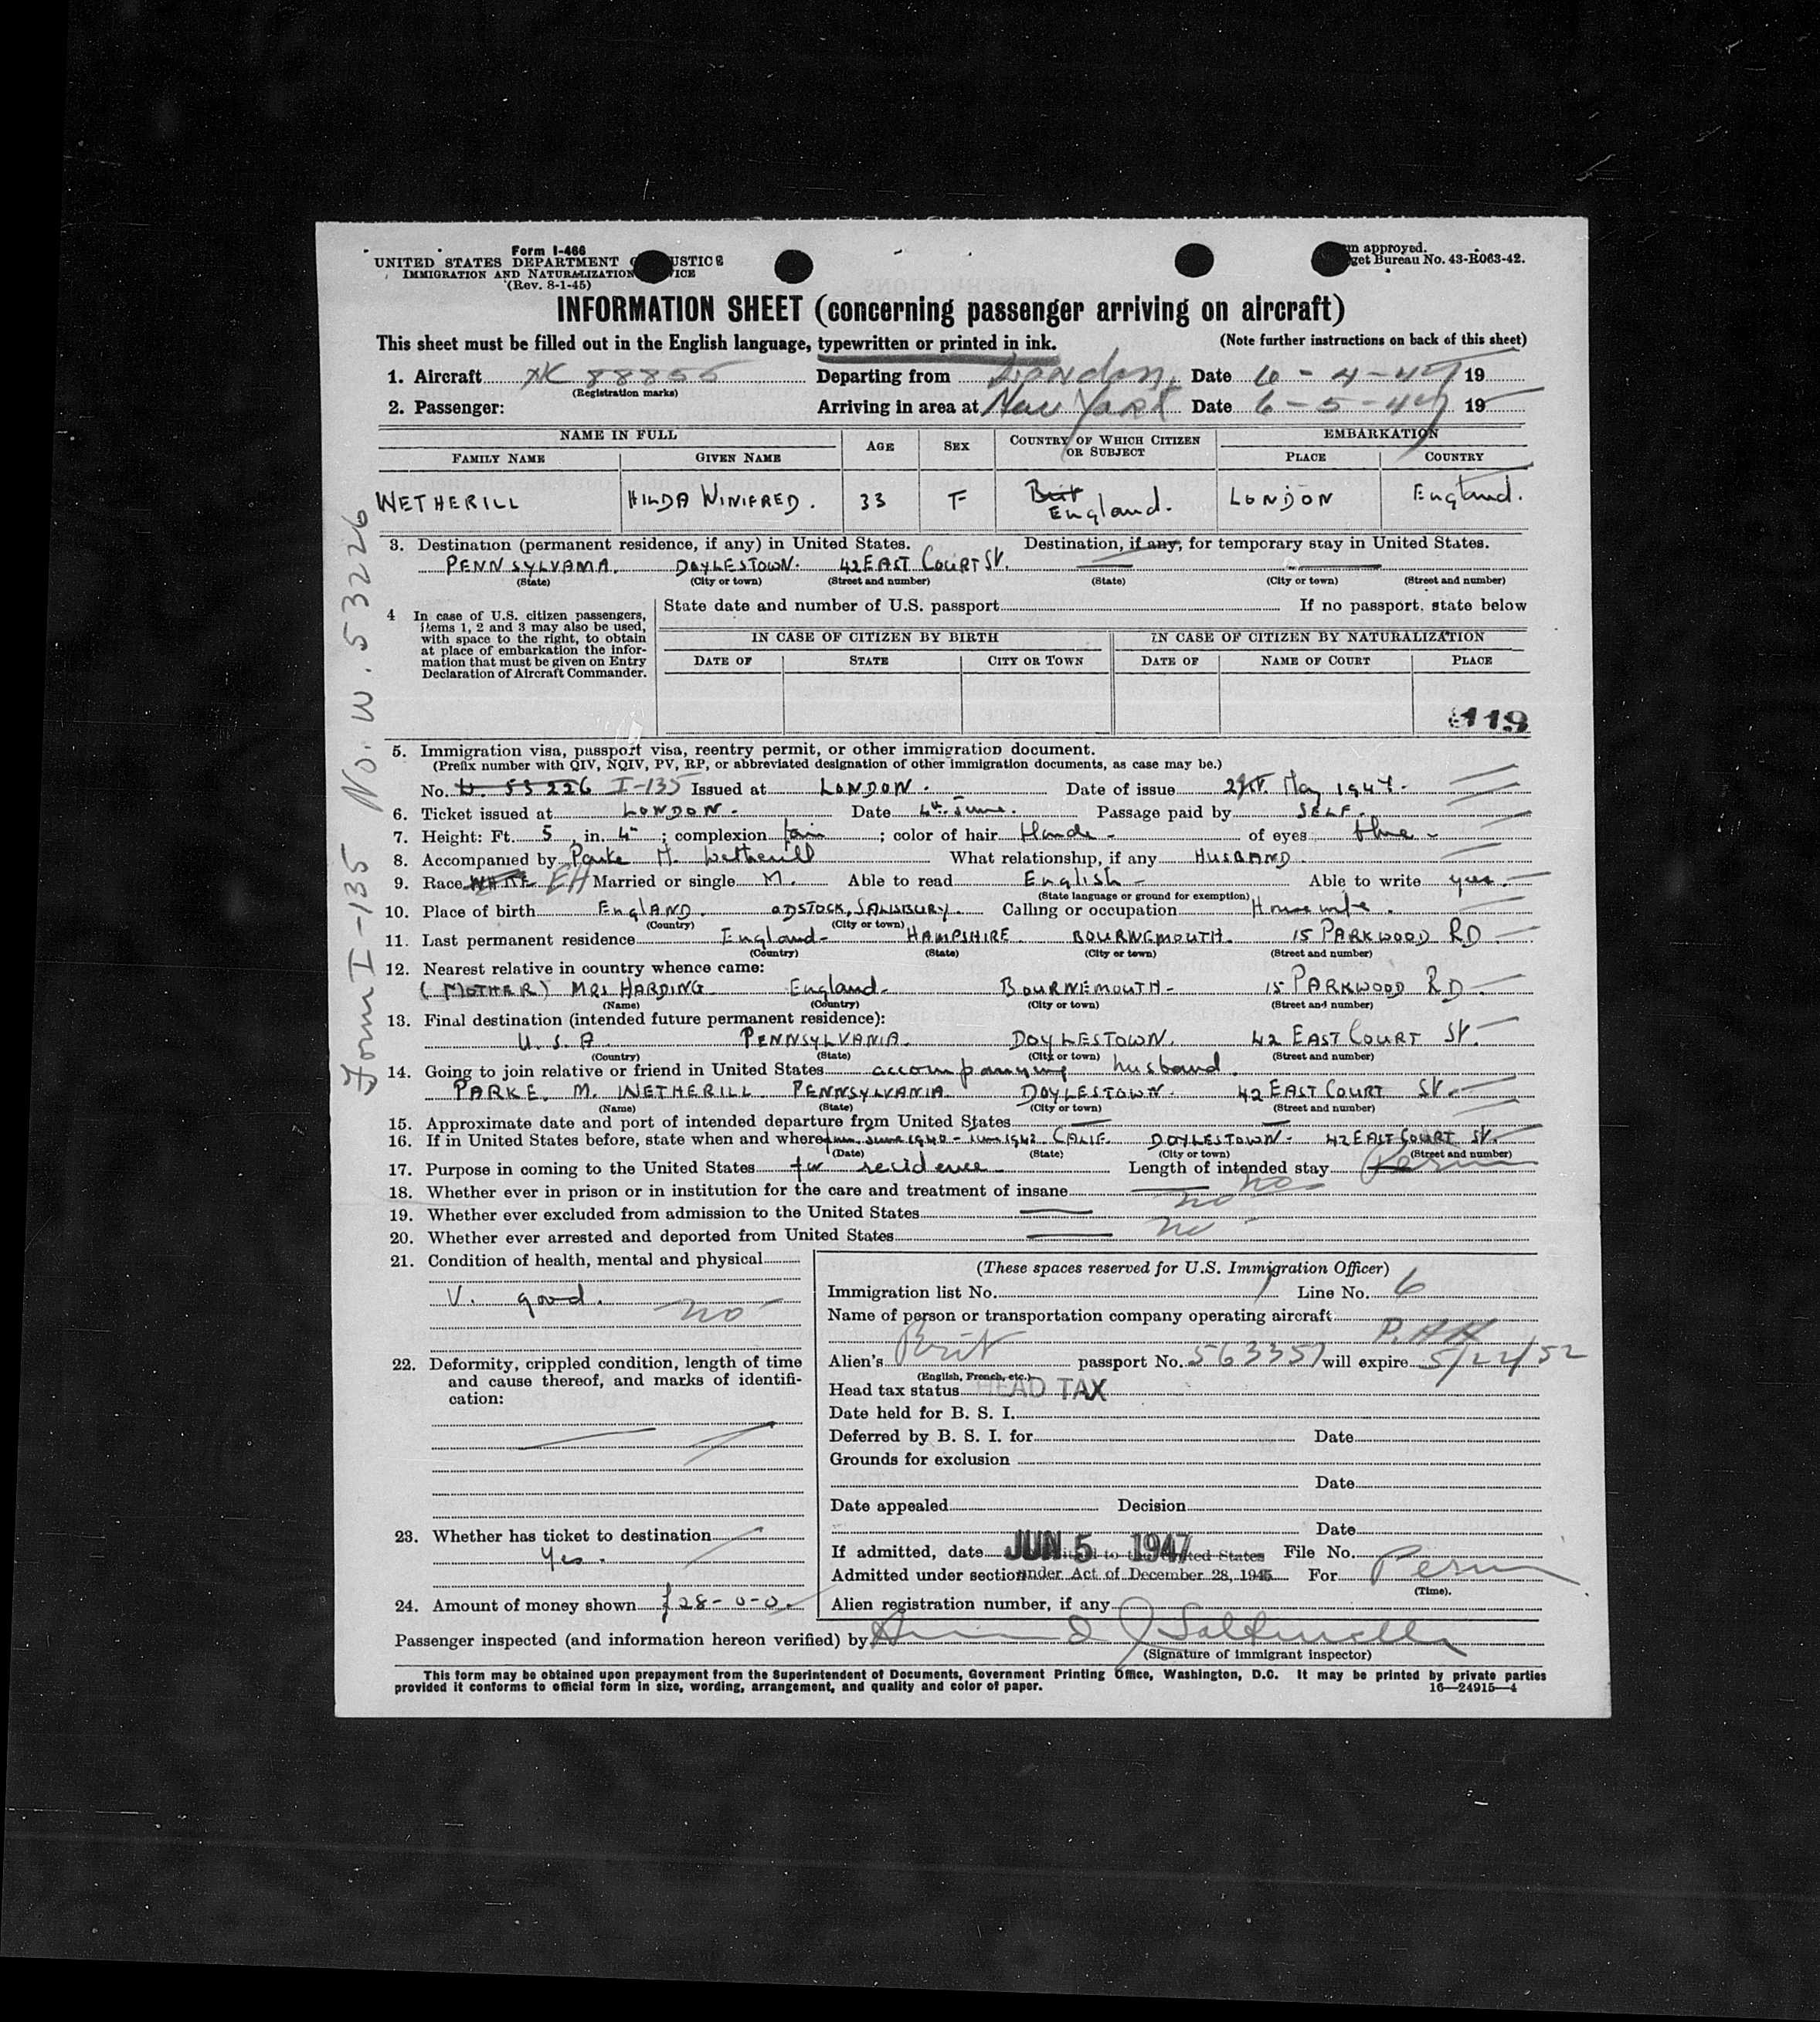 Form I-466
UNITED STATES DEPARTMENT USTICE
IMMIGRATION AND NATURALIZATION VICE
(Rev. 8-1-45)
m approved.
get Bureau No. 43-R063-42.
INFORMATION SHEET (concerning passenger arriving on aircraft)
This sheet must be filled out in the English language, typewritten or printed in ink. (Note further instructions on back of this sheet)
1. Aircraft 88855 Departing from London, Date 19
(Registration marks)
2. Passenger: Arriving in area at New York Date 6-5-47 19
NAME IN FULL AGE SEX COUNTRY OF WHICH CITIZEN OR SUBJECT EMBARKATION
FAMILY NAME GIVEN NAME PLACE COUNTRY
WETHERILL HILDA WINIFRED. 33 F Brit England. LONDON England.
3. Destination (permanent residence, if any) in United States. Destination, if any, for temporary stay in United States.
PENNSYLVANIA. DOYLESTOWN. 42 EAST COURT St.
(State) (City or town) (Street and number) (State) (City or town) (Street and number)
4 In case of U.S. citizen passengers, items 1, 2 and 3 may also be used, with space to the right, to obtain at place of embarkation the information that must be given on Entry Declaration of Aircraft Commander.
State date and number of U.S. passport If no passport, state below
IN CASE OF CITIZEN BY BIRTH IN CASE OF CITIZEN BY NATURALIZATION
DATE OF STATE CITY OR TOWN DATE OF NAME OF COURT PLACE
119
5. Immigration visa, passport visa, reentry permit, or other immigration document.
(Prefix number with QIV, NQIV, PV, RP, or abbreviated designation of other immigration documents, as case may be.)
No. W. 53226 I-135 Issued at LONDON. Date of issue May 1947.
6. Ticket issued at LONDON. Date 4th June. Passage paid by SELF.
7. Height: Ft. 5, in. 4; complexion fair; color of hair blonde of eyes blue
8. Accompanied by Parke M. Wetherill What relationship, if any HUSBAND.
9. Race WHITE Married or single M. Able to read English Able to write yes.
(State language or ground for exemption)
10. Place of birth ENGLAND. ODSTOCK, SALISBURY. Calling or occupation Housewife.
(Country) (City or town)
11. Last permanent residence England HAMPSHIRE. BOURNEMOUTH. 15 PARKWOOD RD
(Country) (State) (City or town) (Street and number)
12. Nearest relative in country whence came:
(MOTHER) MRS HARDING. England. BOURNEMOUTH 15 PARKWOOD RD
(Name) (Country) (City or town) (Street and number)
13. Final destination (intended future permanent residence):
U.S.A. PENNSYLVANIA. DOYLESTOWN. 42 EAST COURT St.
(Country) (State) (City or town) (Street and number)
14. Going to join relative or friend in United States accompanying husband.
PARKE. M. WETHERILL PENNSYLVANIA. DOYLESTOWN. 42 EAST COURT St.
(Name) (State) (City or town) (Street and number)
15. Approximate date and port of intended departure from United States
16. If in United States before, state when and where June 1940 - June 1942. CALIF. DOYLESTOWN. 42 EAST COURT St.
(Date) (State) (City or town) (Street and number)
17. Purpose in coming to the United States for residence Length of intended stay Perm
18. Whether ever in prison or in institution for the care and treatment of insane no
19. Whether ever excluded from admission to the United States no
20. Whether ever arrested and deported from United States no
21. Condition of health, mental and physical
V. good. no
22. Deformity, crippled condition, length of time and cause thereof, and marks of identification:
23. Whether has ticket to destination
Yes.
24. Amount of money shown £28-0-0.
(These spaces reserved for U.S. Immigration Officer)
Immigration list No. 1 Line No. 6
Name of person or transportation company operating aircraft
P.A.A
Alien's Brit passport No. 563351 will expire 5/22/52
(English, French, etc.)
Head tax status HEAD TAX
Date held for B. S. I.
Deferred by B. S. I. for Date
Grounds for exclusion
Date
Date appealed Decision
Date
If admitted, date JUN 5 1947 File No.
Admitted under section under Act of December 28, 1945 For Perm
(Time).
Alien registration number, if any
Passenger inspected (and information hereon verified) by
(Signature of immigrant inspector)
This form may be obtained upon prepayment from the Superintendent of Documents, Government Printing Office, Washington, D.C. It may be printed by private parties
provided it conforms to official form in size, wording, arrangement, and quality and color of paper. 16—24915—4
Form I-135 No. W. 53226